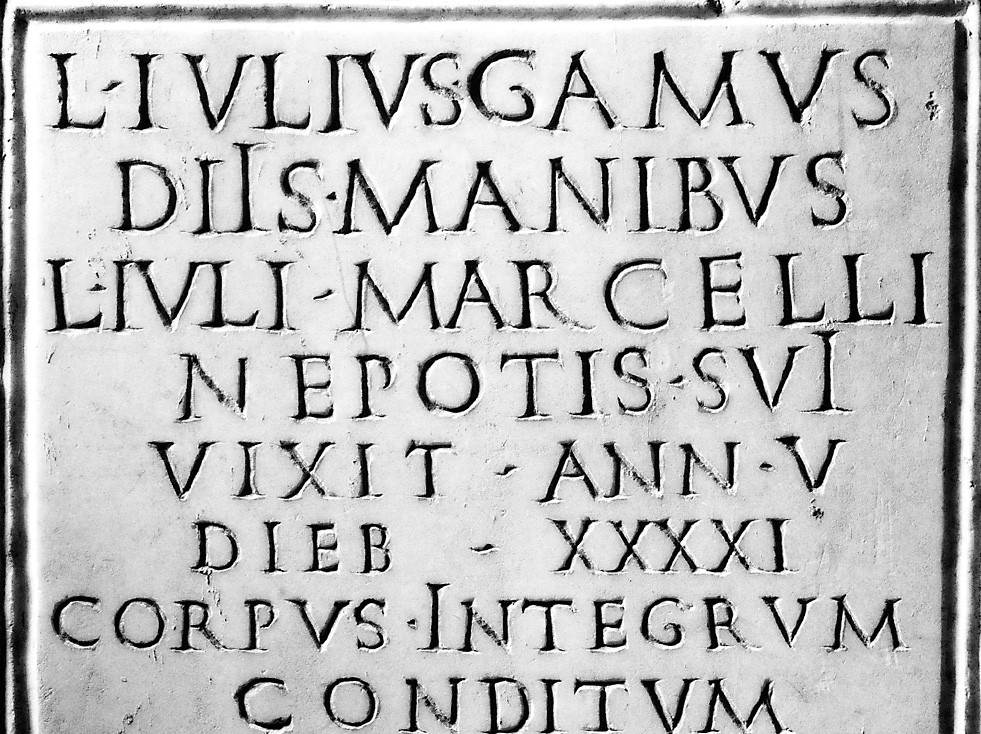 L·IVLIVS·GAMVS
DIIS·MANIBVS
L·IVLI·MARCELLI
NEPOTIS·SVI
VIXIT·ANN·V
DIEB·XXXXI
CORPVS·INTEGRVM
CONDITVM